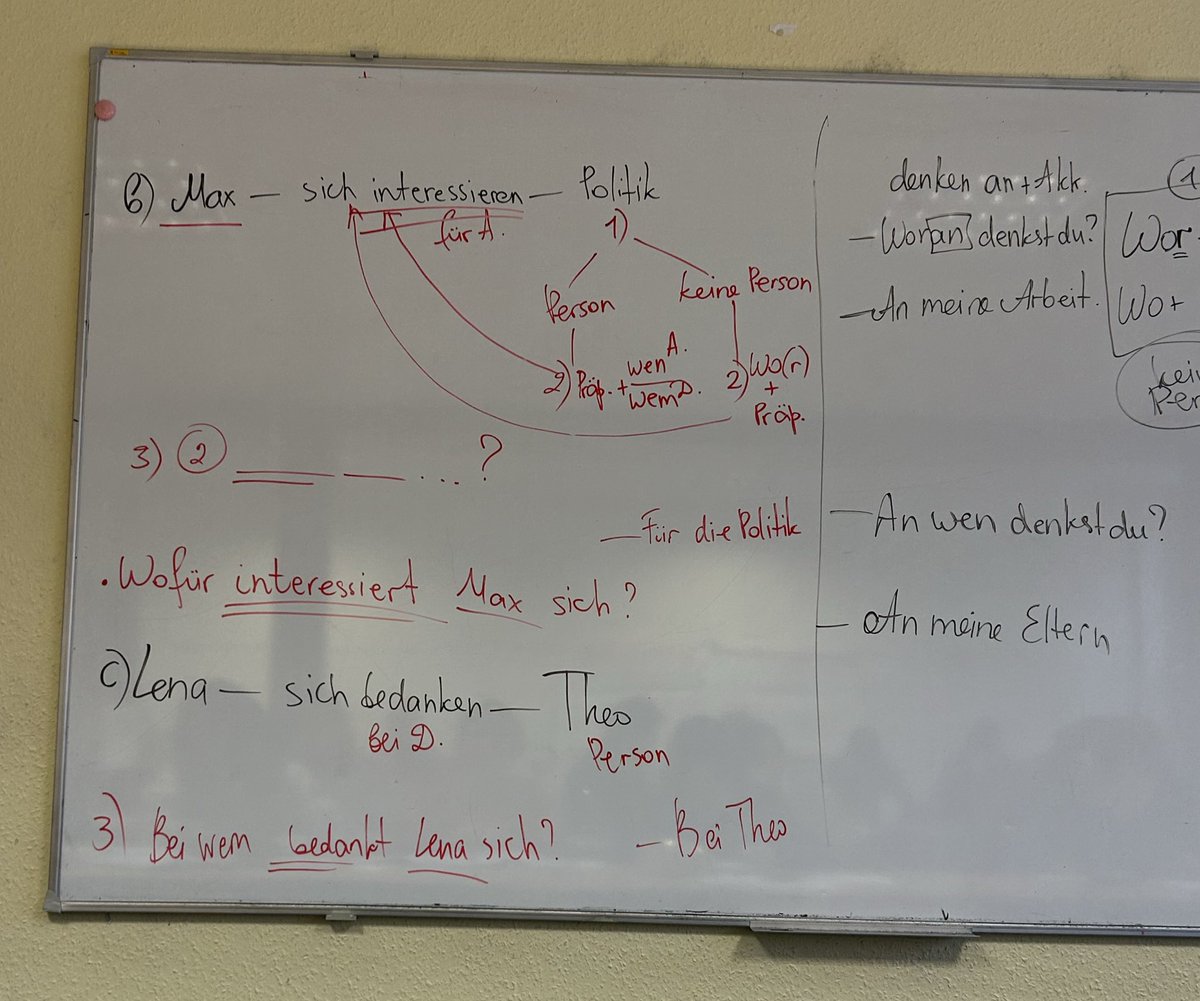 b) Max — sich interessieren — Politik
für A.
1)
Person
keine Person
2) Präp. + wen A.
wem D.
2) Wo(r)
+
Präp.
3) ② ___ ___ ...?
— Für die Politik
. Wofür interessiert Max sich?
c) Lena — sich bedanken — Theo
bei D.
Person
3) Bei wem bedankt Lena sich? — Bei Theo
denken an + Akk.
— Woran denkst du?
— An meine Arbeit.
— An wen denkst du?
— An meine Eltern
1
Wor
Wo+